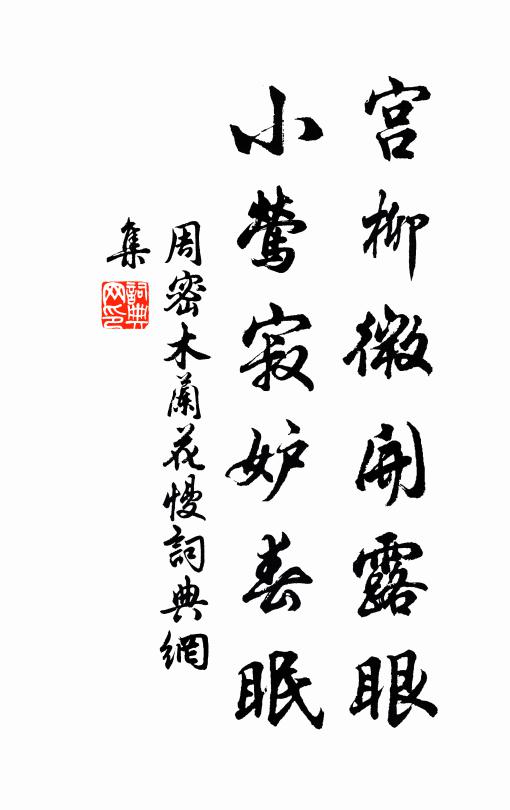 宫柳微開露眼
小鶯寂妒春眠
周密木蘭花慢詞典網
集
詞典
网印